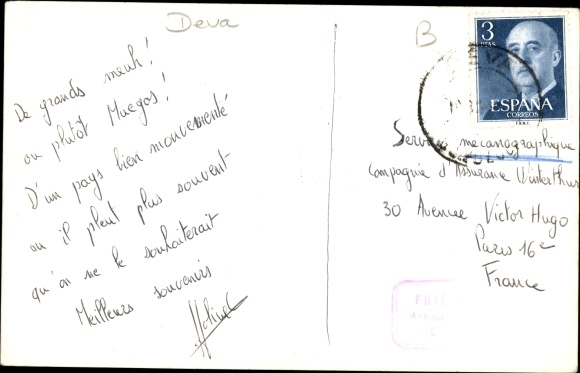 Deva
B
De grands meuh!
ou plutôt Muegos!
D'un pays bien mouvementé
ou il pleut plus souvent
qu'on ne le souhaiterait
Meilleurs souvenirs
3
PTAS
ESPAÑA
CORREOS
Service mecanographique
Compagnie d'Assurance Winterthur
30 Avenue Victor Hugo
Paris 16e
France